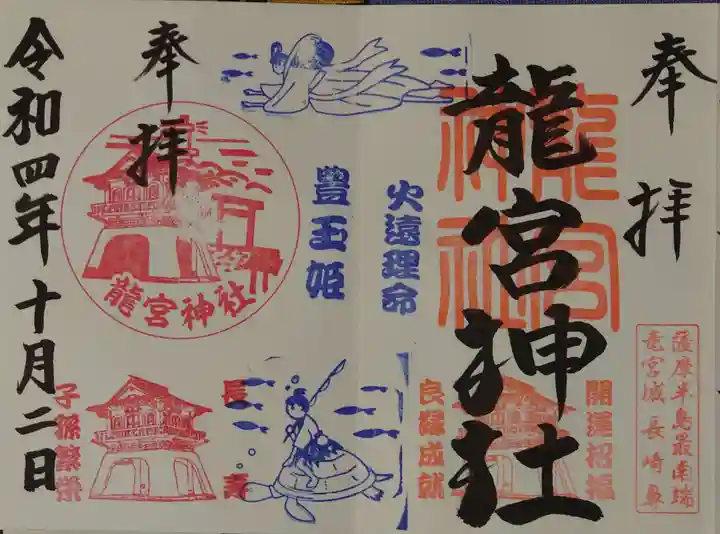 奉拝
龍宮神社
龍宮神社
薩摩半島最南端
竜宮城長崎鼻
開運招福
良縁成就
火遠理命
豊玉姫
奉拝
龍宮神社
長寿
子孫繁栄
令和四年十月二日